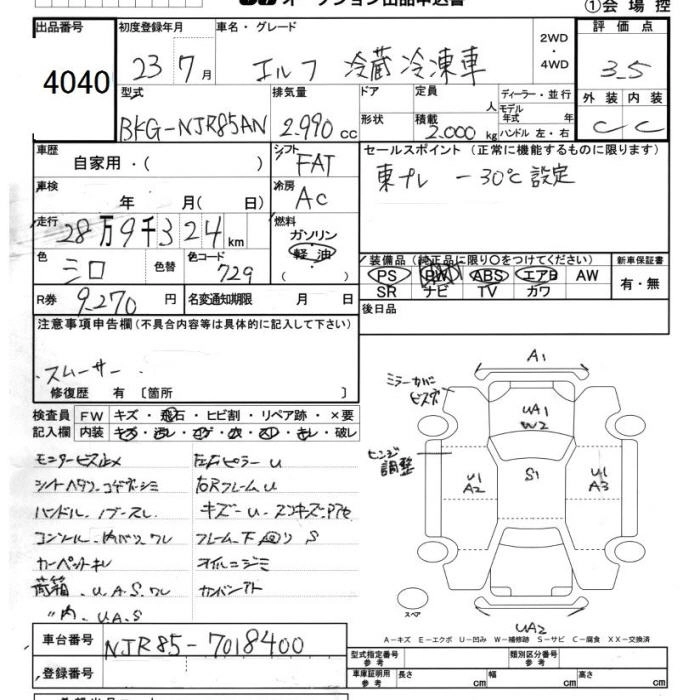 オークション出品申込書 ①会場控
出品番号 4040
初度登録年月 23 7月
車名・グレード エルフ 冷蔵冷凍車
2WD・4WD
評価点 3.5
外装 内装 C C
型式 BKG-NJR85AN
排気量 2.990cc
ドア 形状
定員 人
積載 2.000kg
ディーラー・並行
モデル年式 年
ハンドル 左・右
車歴 自家用・( )
シフト FAT
セールスポイント(正常に機能するものに限ります)
東プレ -30℃設定
車検 年 月( 日)
冷房 AC
走行 28万9千324km
燃料 ガソリン・軽油・( )
色 シロ 色替 色コード 729
装備品(純正品に限り○をつけてください)
PS PW ABS エアB AW
SR ナビ TV カワ
新車保証書 有・無
R券 9.270円
名変通知期限 月 日
後日品
注意事項申告欄(不具合内容等は具体的に記入して下さい)
・スムーサー
修復歴 有〔箇所 〕
検査員記入欄
FW キズ・飛石・ヒビ割・リペア跡・×要
内装 キズ・汚レ・コゲ・穴・スレ・キレ・破レ
モニタービス止メ 左右ピラーU
シートヘタリ・コゲ・シミ 右RフレームU
ハンドル・ノブスレ キズ・U・
コンソール・内ハリワレ フレーム下回りS
カーペットキレ オイルニジミ
荷箱・U.A.S.ワレ
〃内.U.A.S
A1
ミラーカバービスダメ
UA1
W2
ヒンジ調整
U1
A2
S1
U1
A3
スペア
UA2
A-キズ E-エクボ U-凹み W-補修跡 S-サビ C-腐食 XX-交換済
車台番号 NJR85-7018400
登録番号
型式指定番号 参考
類別区分番号 参考
車庫証明用 参考 長さ cm 幅 cm 高さ cm